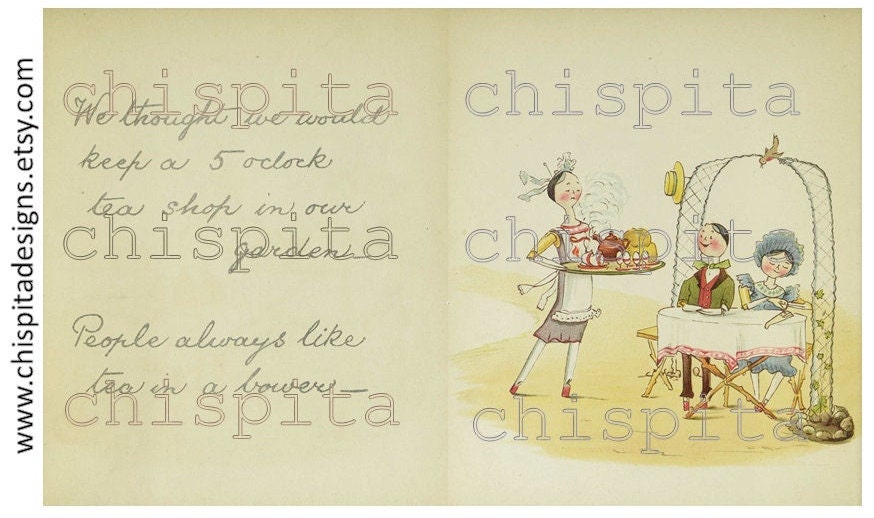 www.chispitadesigns.etsy.com
chispita chispita
We thought we would
keep a 5 oclock
tea shop in our
chispita chispita
garden—
People always like
tea in a bower—
chispita chispita